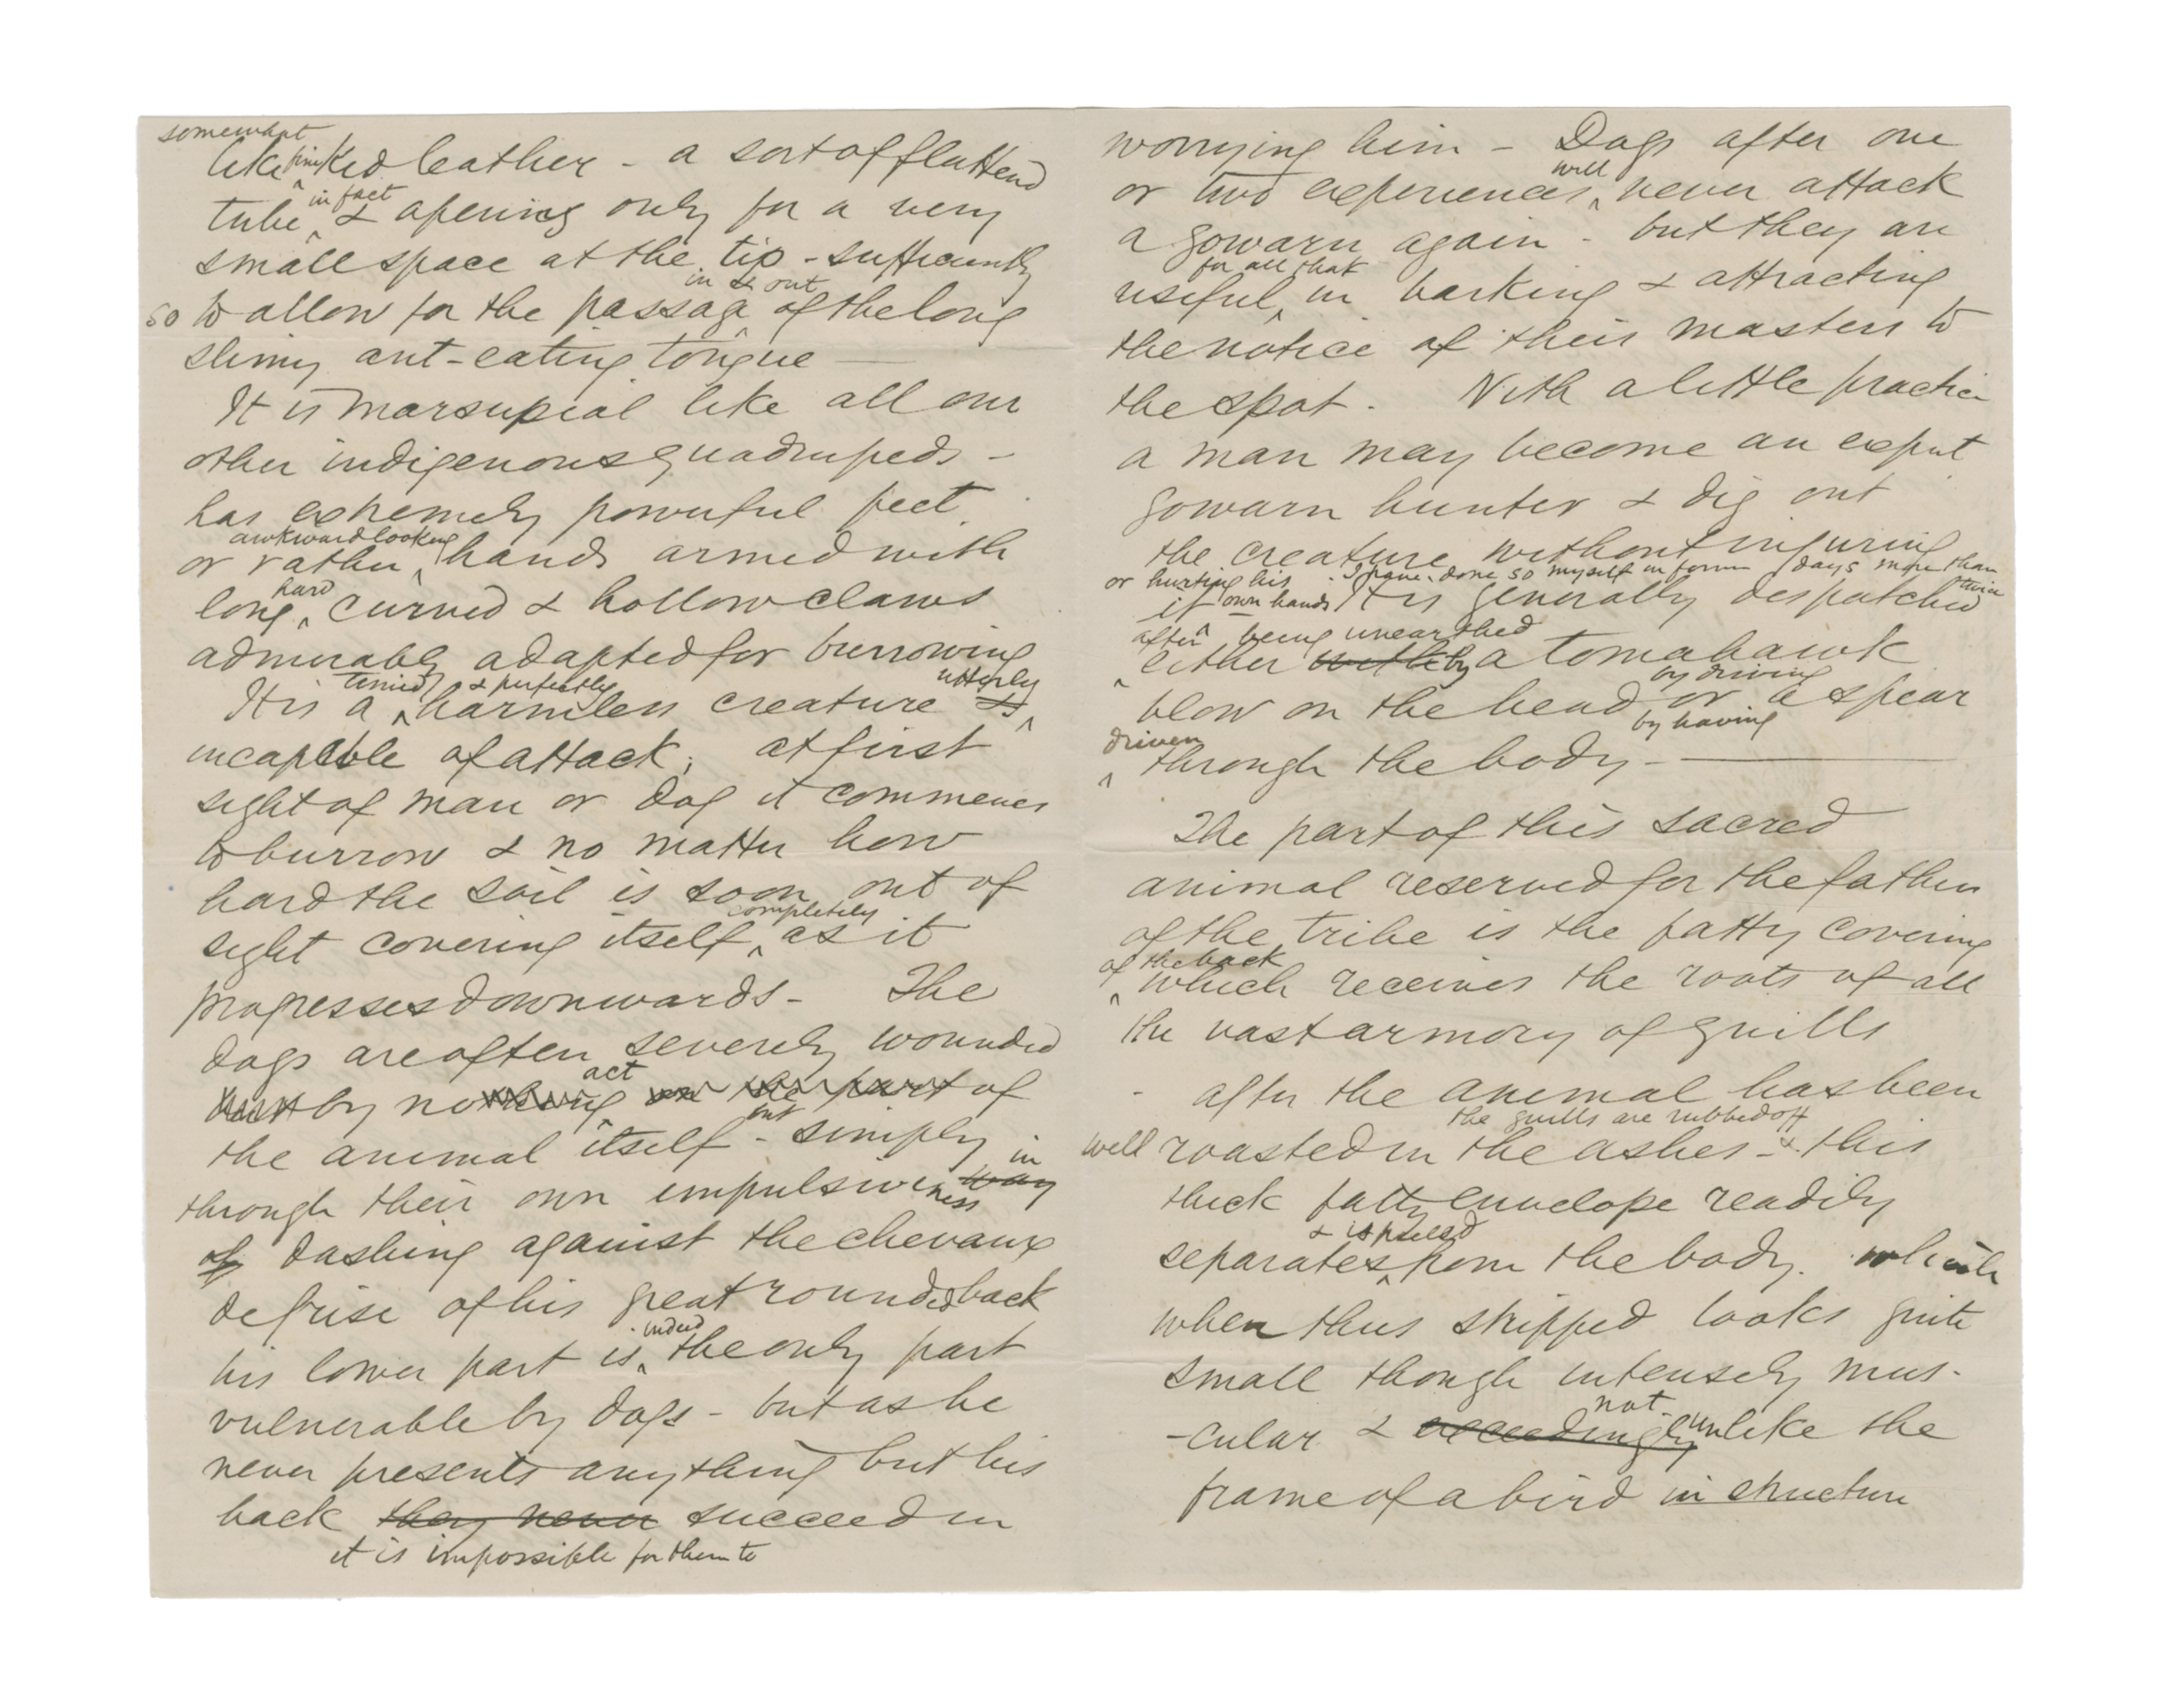 somewhat
like fine Kid leather - a sort of flattend
in fact
tube & opening only for a very
small space at the tip - sufficiently
in & out
so to allow for the passage of the long
slimy ant-eating tongue
It is marsupial like all our
other indigenous quadrupeds -
has extremely powerful feet
awkward looking
or rather hands armed with
hard
long, curved & hollow claws
admirably adapted for burrowing
timid & perfectly utterly
It is a harmless creature is
incapable of attack; at first
sight of man or dog it commences
to burrow & no matter how
hard the soil is soon out of
completely
sight covering itself as it
progresses downwards - The
dogs are often severely wounded
act
by nothing on the part of
but
the animal itself - simply
in
through their own impulsiveness way
of dashing against the chevaux
de frise of his great rounded back
indeed
his lower part is the only part
vulnerable by dogs - but as he
never presents anything but his
back they never succeed in
it is impossible for them to
worrying him - Dogs after one
will
or two experiences never attack
a gowarn again - but they are
for all that
useful in barking & attracting
the notice of their masters to
the spot. With a little practice
a man may become an expert
gowarn hunter & dig out
the creature without injuring
or hurting his own hands. I have done so myself in former days more than twice
it It is generally despatched
after being unearthed
either with by a tomahawk
by driving
blow on the head or a spear
by having
driven
through the body -
The part of this sacred
animal reserved for the fathers
of the tribe is the fatty covering
of the back
which receives the roots of all
the vast armory of quills
- after the animal has been
the quills are rubbed off
well roasted in the ashes - & this
thick fatty envelope readily
& is peeled
separates from the body. which
when thus stripped looks quite
small though intensely mus-
not
-cular & exceedingly unlike the
frame of a bird in structure